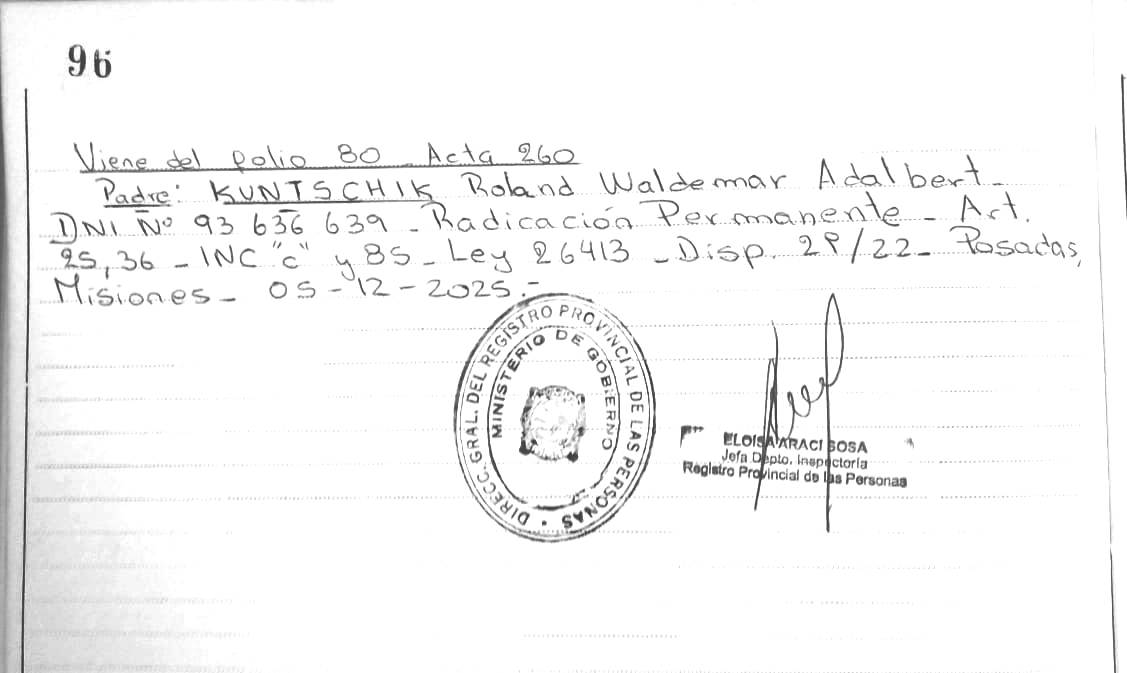 96
Viene del folio 80 - Acta 260
Padre: KUNTSCHIK Roland Waldemar Adalbert -
DNI Nº 93 636 639 - Radicación Permanente - Art.
25, 36 - INC "c" y 85 - Ley 26413 - Disp. 29/22 - Posadas,
Misiones - 05 - 12 - 2025.-
DIRECC. GRAL. DEL REGISTRO PROVINCIAL DE LAS PERSONAS
MINISTERIO DE GOBIERNO
ELOISA ARACI SOSA
Jefa Dpto. Inspectoría
Registro Provincial de las Personas